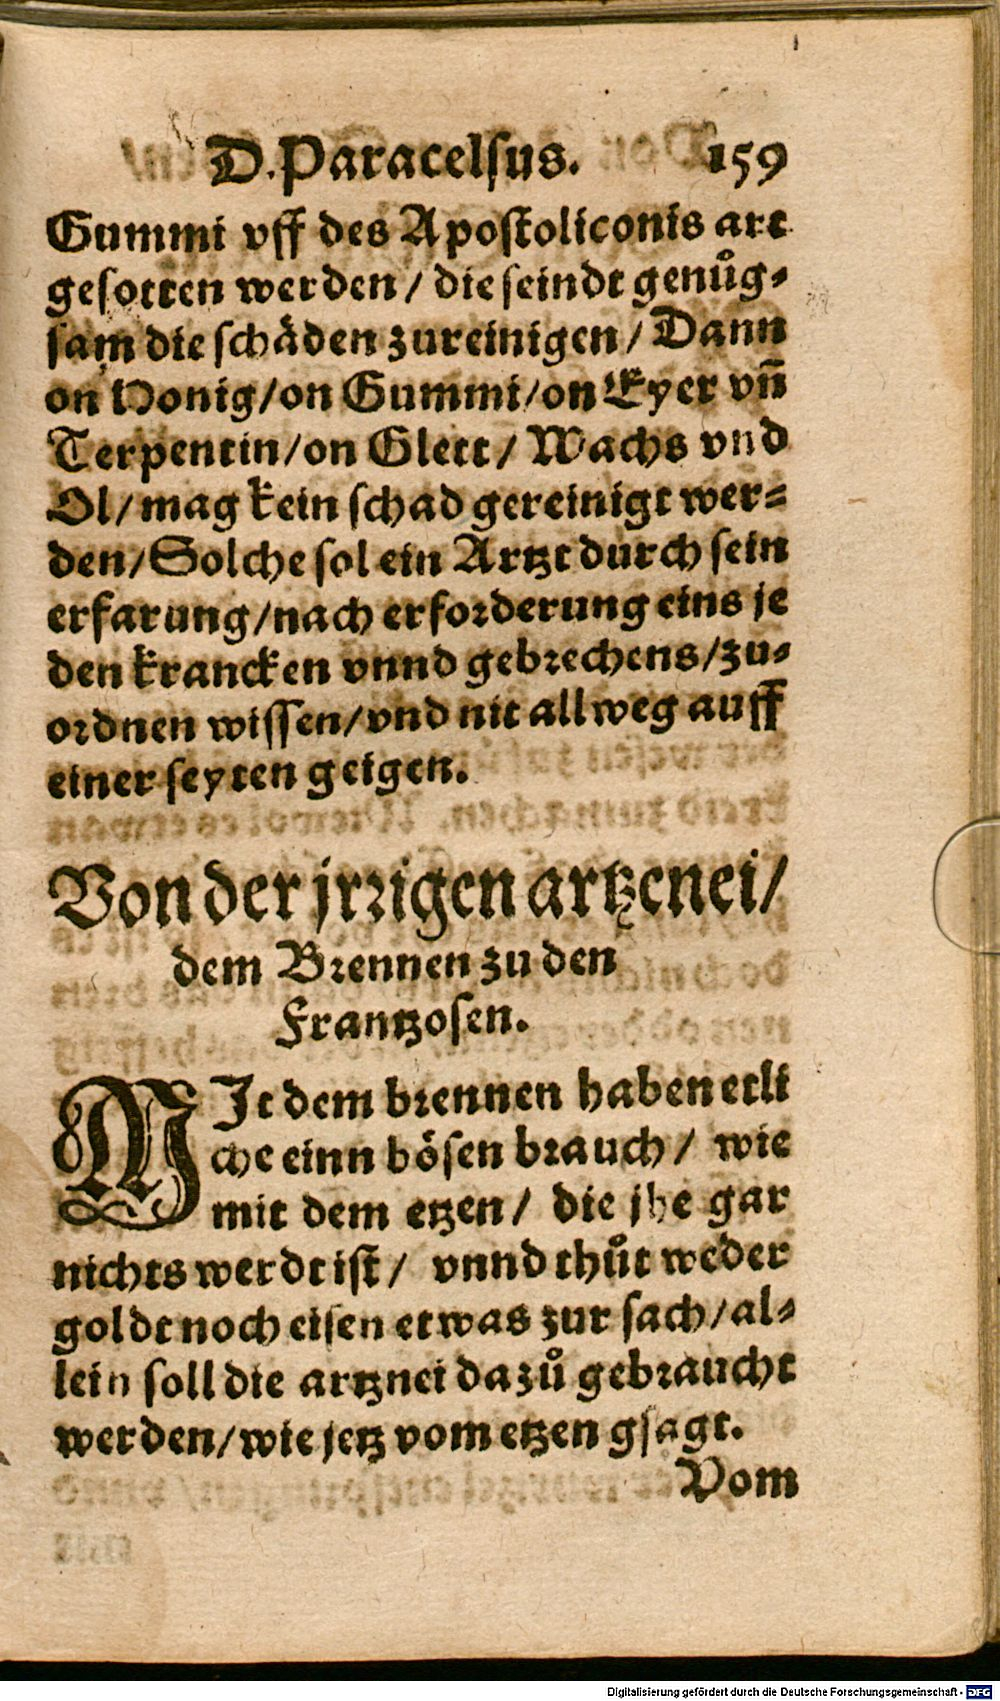 D. Paracelsus. 159
Gummi vff des Apostoliconis art
gesotten werden / die seindt genůg⸗
sam die schäden zureinigen / Dann
on Honig / on Gummi / on Eyer vñ
Terpentin / on Glett / Wachs vnd
Ol / mag kein schad gereinigt wer⸗
den / Solche sol ein Artzt durch sein
erfarung / nach erforderung eins je
den krancken vnnd gebrechens / zu⸗
ordnen wissen / vnd nit allweg auff
einer seyten geigen.
Von der jrrigen artzenei /
dem Brennen zu den
Frantzosen.
MIt dem brennen haben etli
che einn bösen brauch / wie
mit dem etzen / die jhe gar
nichts werdt ist / vnnd thůt weder
goldt noch eisen etwas zur sach / al⸗
lein soll die artznei dazů gebraucht
werden / wie jetz vom etzen gsagt.
Vom
Digitalisierung gefördert durch die Deutsche Forschungsgemeinschaft - DFG